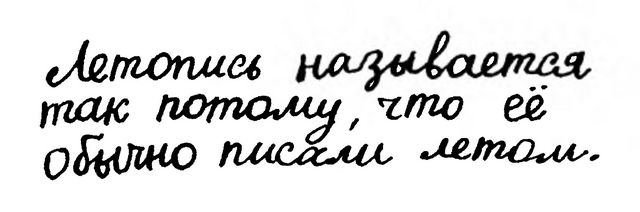 Летопись называется
так потому, что её
обычно писали летом.